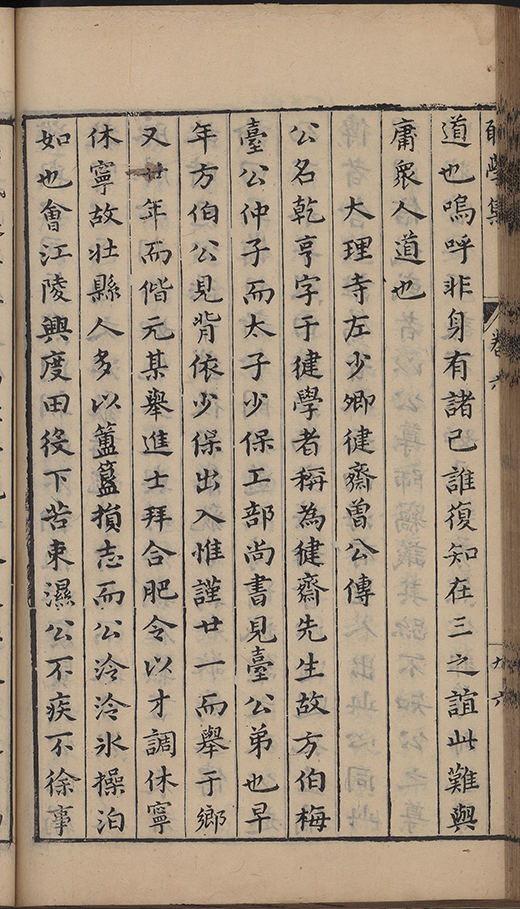 學集 卷六 九六
道也嗚呼非身有諸己誰復知在三之誼此難與
庸衆人道也
大理寺左少卿健齋曽公傳
公名乾亨字于健學者稱為健齋先生故方伯梅
臺公仲子而太子少保工部尚書見臺公弟也早
年方伯公見背依少保出入惟謹廿一而舉于鄉
又廿年而偕元某舉進士拜合肥令以才調休寧
休寧故壯縣人多以簠簋損志而公泠泠氷操泊
如也會江陵興度田役下苦東濕公不疾不徐事